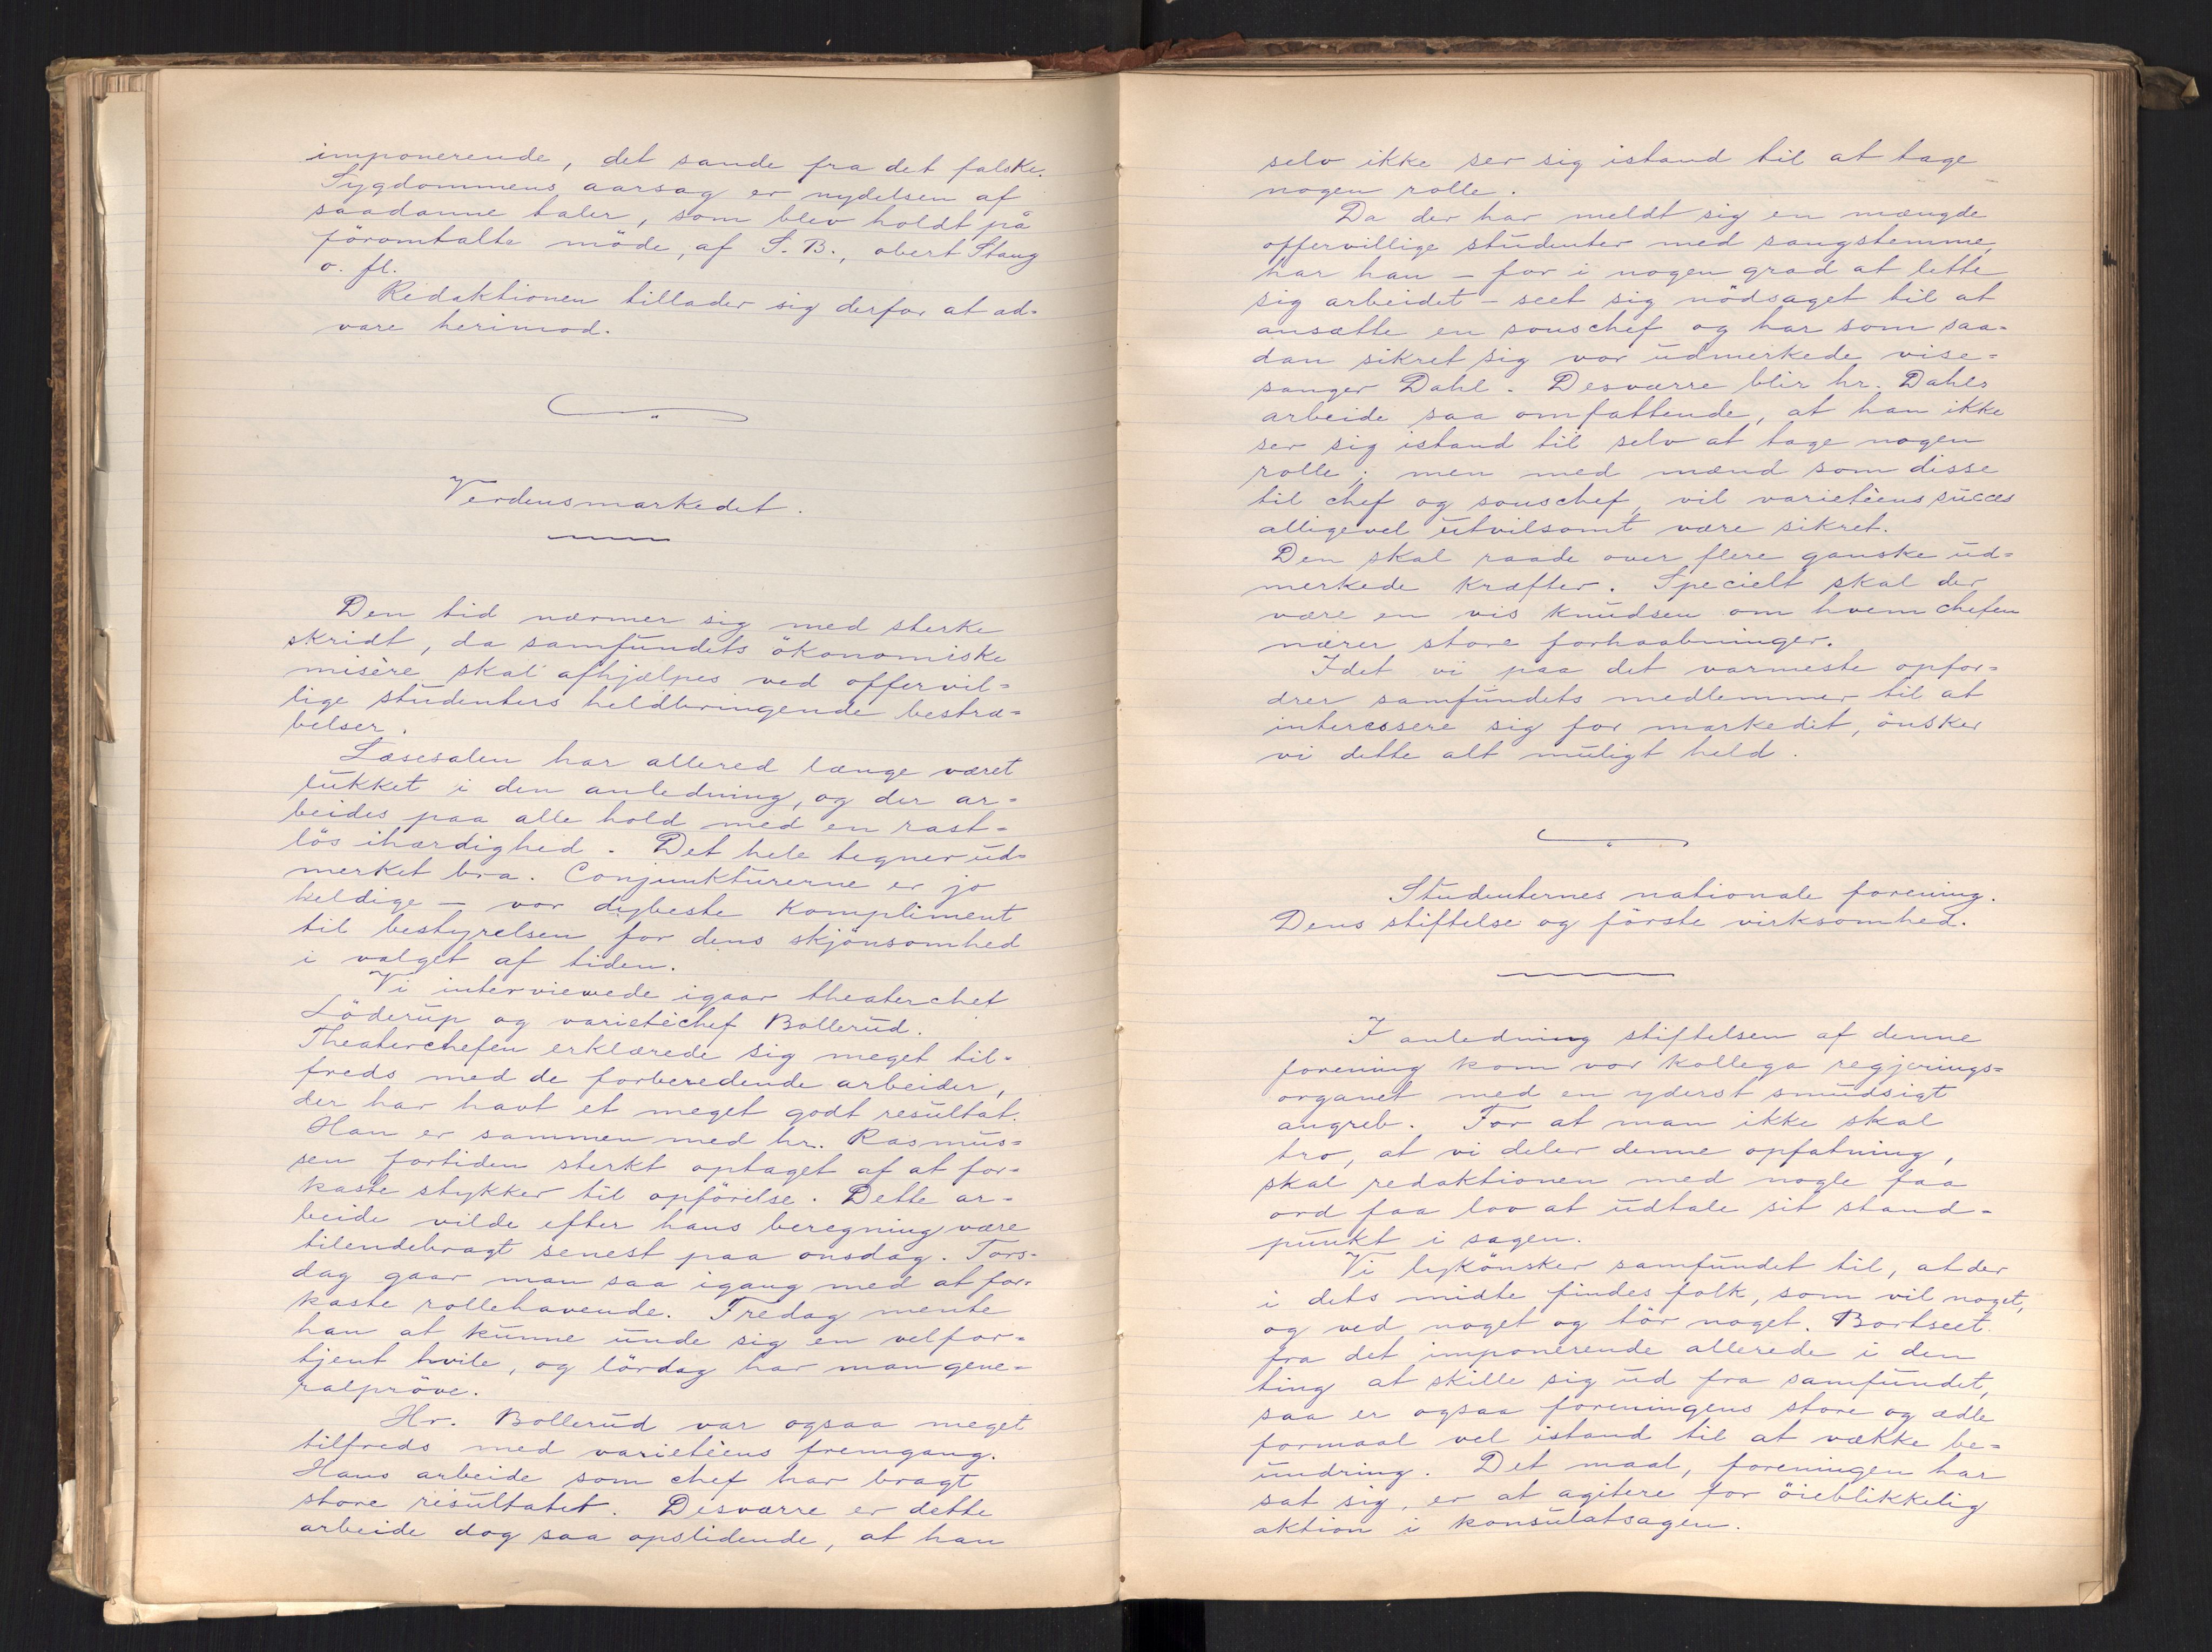 imponerende, det sande fra det falske.
Sygdommens aarsag er nydelsen af
saadanne taler, som blev holdt på
föromtalte möde, af S. B., obert Stang
o. fl.
Redaktionen tillader sig derfor at ad-
vare herimod.
Verdensmarkedet.
Den tid nærmer sig med sterke
skridt, da samfundets ökonomiske
misère skal afhjælpes ved offervil=
lige studenters heldbringende bestræ=
belser.
Læsesalen har allered længe været
lukket i den anledning, og der ar=
beides paa alle hold med en rast=
lös ihærdighed. Det hele tegner ud=
merket bra. Conjunkturerne er jo
heldige – vor dybeste kompliment
til bestyrelsen for dens skjönsomhed
i valget af tiden.
Vi interviewede igaar theaterchef
Löderup og varietéchef Bollerud.
Theaterchefen erklærede sig meget til-
freds med de forberedende arbeider,
der har havt et meget godt resultat.
Han er sammen med hr. Rasmus=
sen fortiden sterkt optaget af at for=
kaste stykker til opförelse. Dette ar=
beide vilde efter hans beregning være
tilendebragt senest paa onsdag. Tors-
dag gaar man saa igang med at for-
kaste rollehavende. Fredag mente
han at kunne unde sig en velfor=
tjent hvile, og lördag har man gene=
ralpröve.
Hr. Bollerud var ogsaa meget
tilfreds med varietéens fremgang.
Hans arbeide som chef har bragt
store resultatet. Desværre er dette
arbeide dog saa opslidende, at han
selv ikke ser sig istand til at tage
nogen rolle.
Da der har meldt sig en mængde
offervillige studenter med sangstemme,
har han – for i nogen grad at lette
sig arbeidet – seet sig nödsaget til at
ansætte en souschef og har som saa=
dan sikret sig vor udmerkede vise=
sanger Dahl. Desværre blir hr. Dahls
arbeide saa omfattende, at han ikke
ser sig istand til selv at tage nogen
rolle; men med mænd som disse
til chef og souschef, vil varietéens succes
alligevel utvilsomt være sikret.
Den skal raade over flere ganske ud=
merkede kræfter. Specielt skal der
være en vis Knudsen om hvem chefen
nærer store forhaabninger.
Idet vi paa det varmeste opfor=
drer samfundets medlemmer til at
interessere sig for markedet, önsker
vi dette alt muligt held.
Studenternes nationale forening.
Dens stiftelse og förste virksomhed.
I anledning stiftelsen af denne
forening kom vor kollega regjerings=
organet med en yderst smudsigt
angreb. For at man ikke skal
tro, at vi deler denne opfatning,
skal redaktionen med nogle faa
ord faa lov at udtale sit stand=
punkt i sagen.
Vi lykönsker samfundet til, at der
i dets midte findes folk, som vil noget,
og ved noget og tör noget. Bortseet
fra det imponerende allerede i den
ting at skille sig ud fra samfundet,
saa er ogsaa foreningens store og ædle
formaal vel istand til at vække be=
undring. Det maal, foreningen har
sat sig, er at agitere for öieblikkelig
aktion i konsulatsagen.